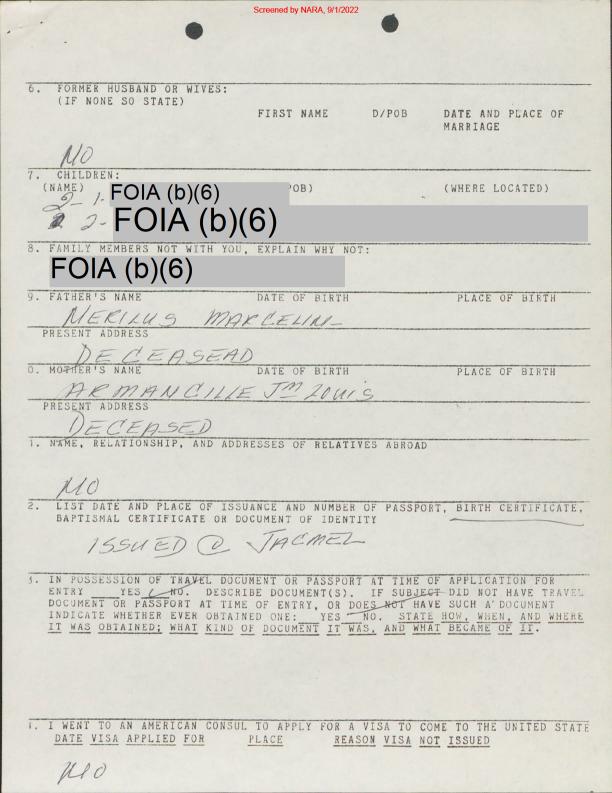 Screened by NARA, 9/1/2022
6. FORMER HUSBAND OR WIVES:
(IF NONE SO STATE)
FIRST NAME D/POB DATE AND PLACE OF
MARRIAGE
NO
7. CHILDREN:
(NAME) POB) (WHERE LOCATED)
2- 1- FOIA (b)(6)
2- FOIA (b)(6)
8. FAMILY MEMBERS NOT WITH YOU, EXPLAIN WHY NOT:
FOIA (b)(6)
9. FATHER'S NAME DATE OF BIRTH PLACE OF BIRTH
MERILUS MARCELIN
PRESENT ADDRESS
DECEASEAD
0. MOTHER'S NAME DATE OF BIRTH PLACE OF BIRTH
ARMANCILLE Jm LOUIS
PRESENT ADDRESS
DECEASED
1. NAME, RELATIONSHIP, AND ADDRESSES OF RELATIVES ABROAD
NO
2. LIST DATE AND PLACE OF ISSUANCE AND NUMBER OF PASSPORT, BIRTH CERTIFICATE,
BAPTISMAL CERTIFICATE OR DOCUMENT OF IDENTITY
ISSUED @ JACMEL
3. IN POSSESSION OF TRAVEL DOCUMENT OR PASSPORT AT TIME OF APPLICATION FOR
ENTRY ___YES ✓ NO. DESCRIBE DOCUMENT(S). IF SUBJECT DID NOT HAVE TRAVEL
DOCUMENT OR PASSPORT AT TIME OF ENTRY, OR DOES NOT HAVE SUCH A DOCUMENT
INDICATE WHETHER EVER OBTAINED ONE:__YES __NO. STATE HOW, WHEN, AND WHERE
IT WAS OBTAINED; WHAT KIND OF DOCUMENT IT WAS, AND WHAT BECAME OF IT.
4. I WENT TO AN AMERICAN CONSUL TO APPLY FOR A VISA TO COME TO THE UNITED STATE
DATE VISA APPLIED FOR PLACE REASON VISA NOT ISSUED
NO